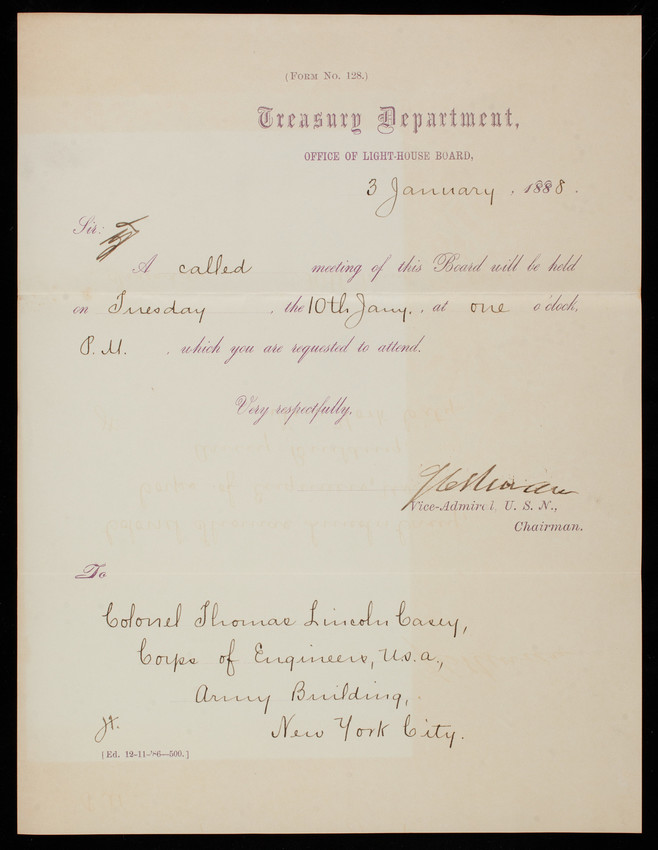 (Form No. 128.)
Treasury Department,
OFFICE OF LIGHT-HOUSE BOARD,
3 January, 1888.
Sir:
A called meeting of this Board will be held
on Tuesday, the 10th Jany., at one o'clock,
P.M., which you are requested to attend.
Very respectfully,
Vice-Admiral, U. S. N.,
Chairman.
To
Colonel Thomas Lincoln Casey,
Corps of Engineers, U.S.A.,
Army Building,
New York City.
[Ed. 12-11-'86—500.]